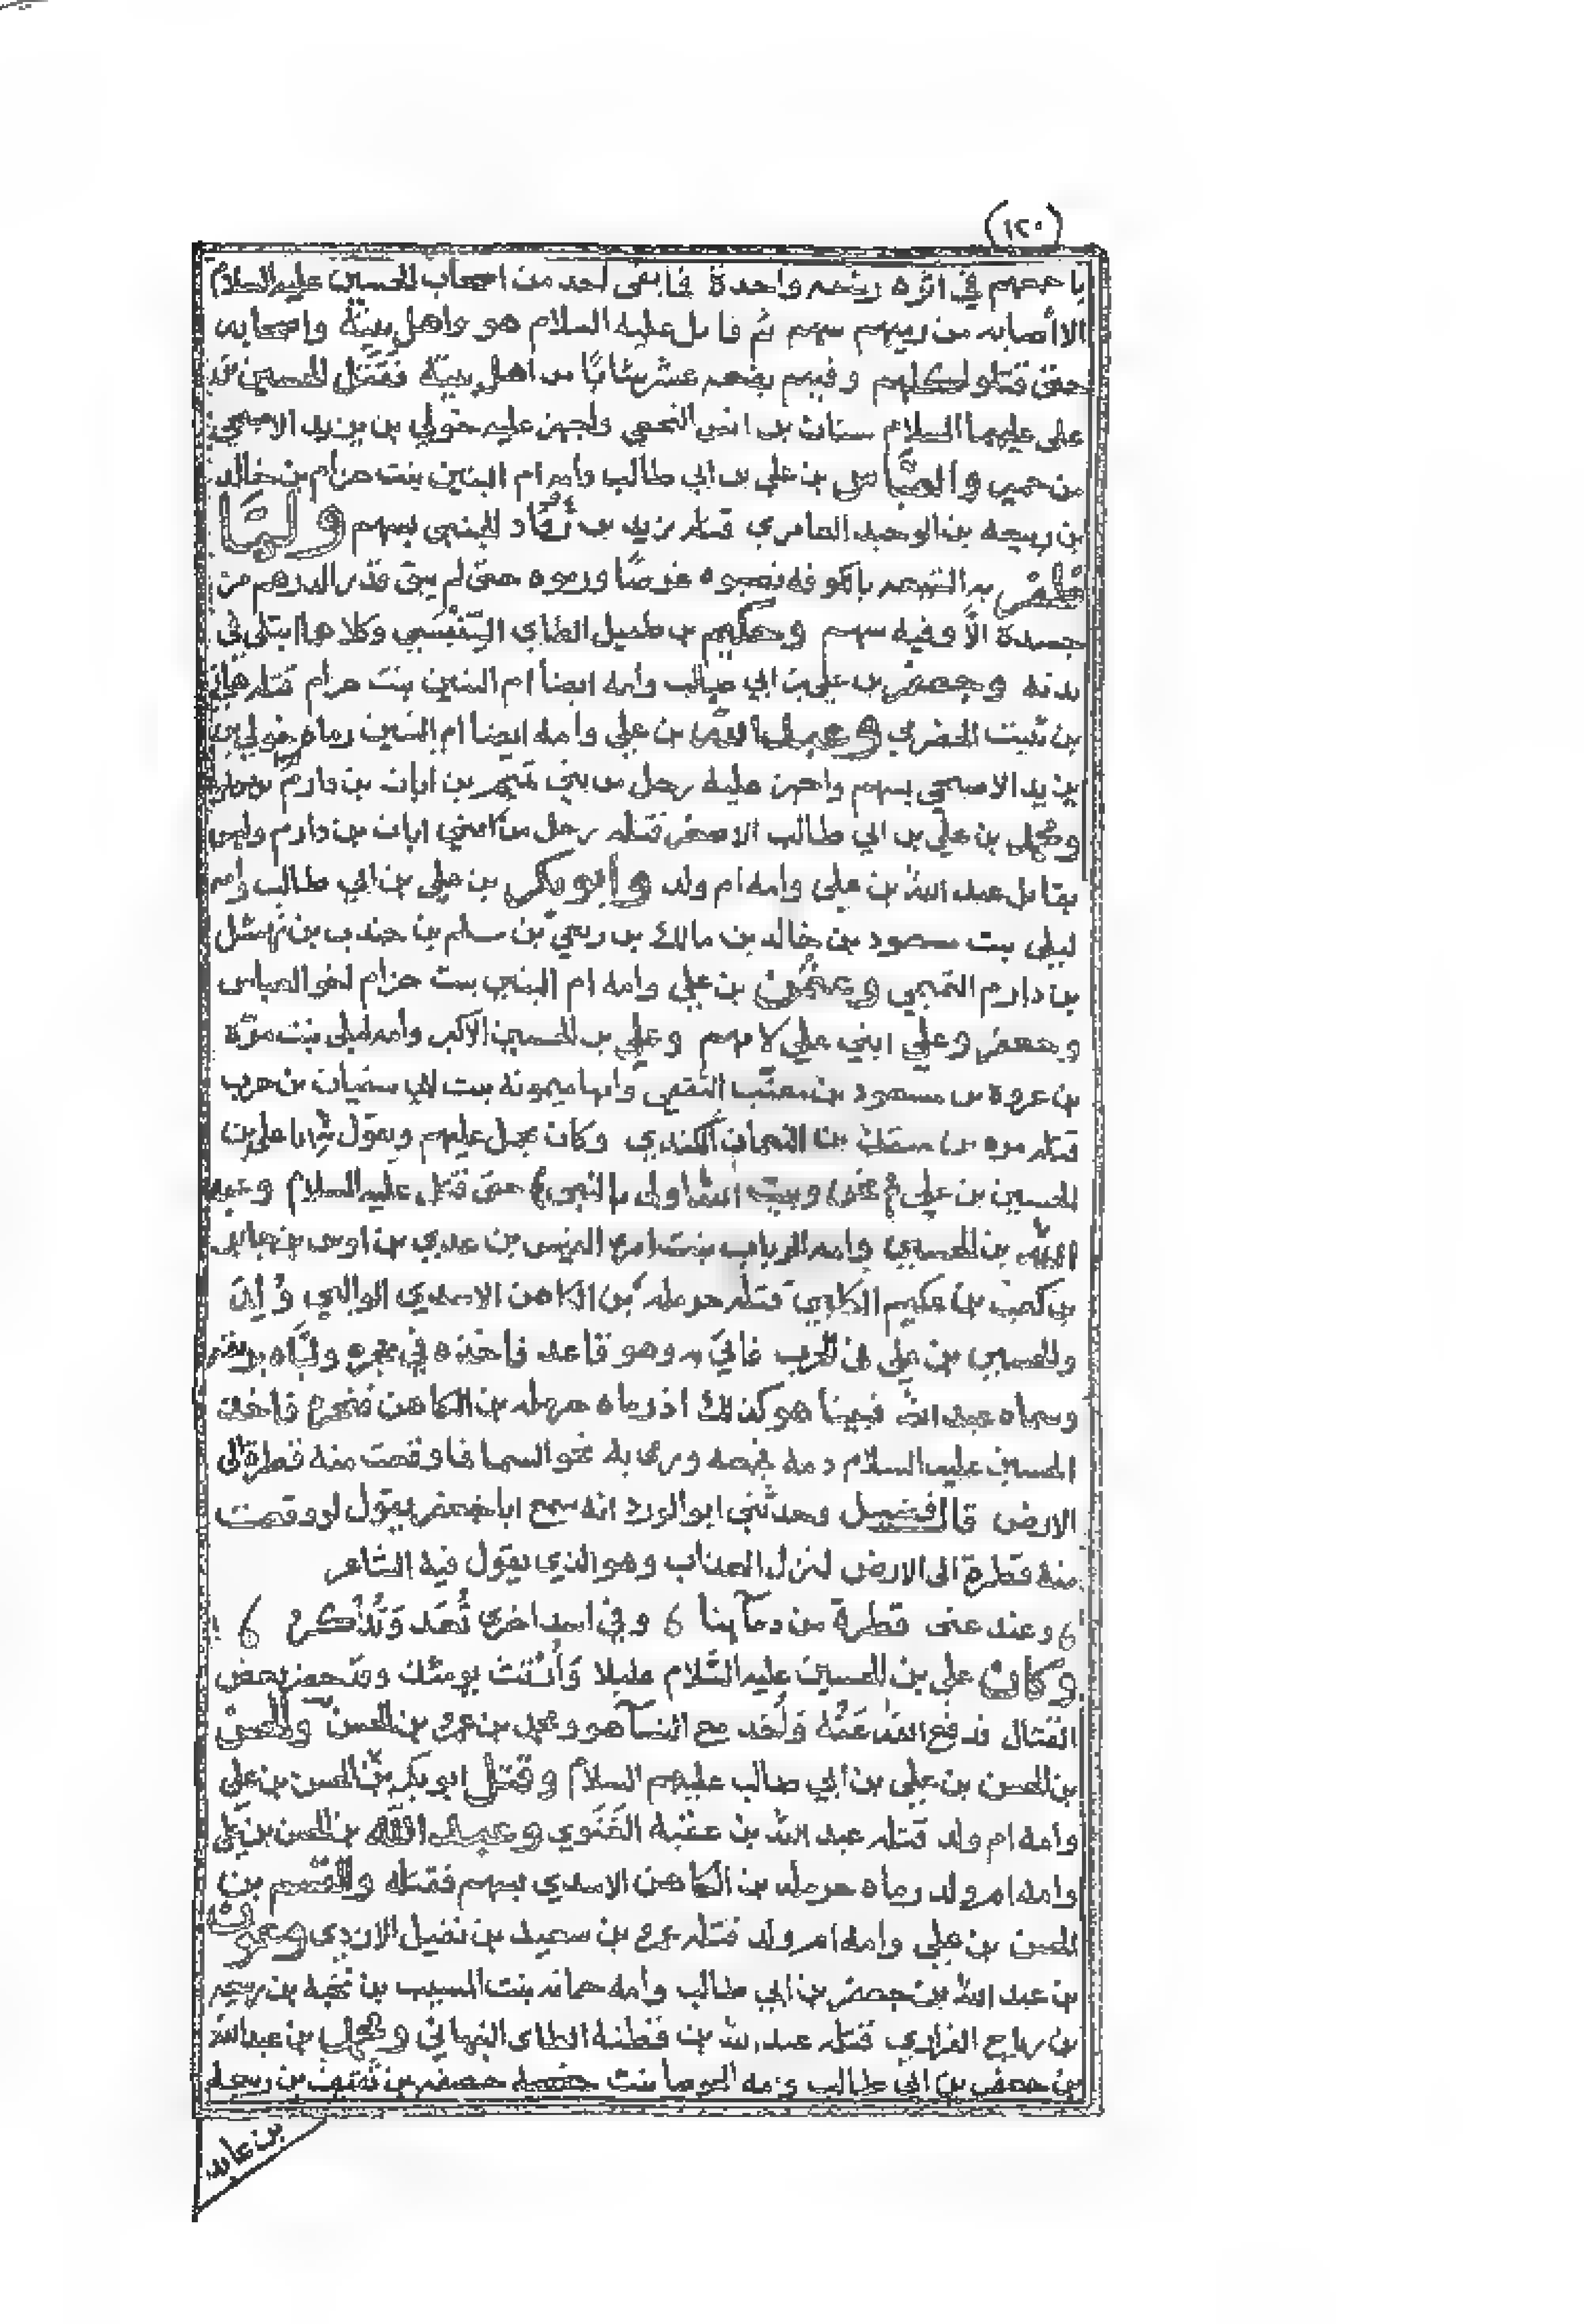 (١٢٠)
باجمعهم في اثره رشقه واحدة فما بقى احد من اصحاب الحسين عليه السلام
الا اصابه من رميهم سهم ثم قاتل عليه السلام هو واهل بيته واصحابه
حتى قتلوا كلهم وفيهم بضعه عشر شابًا من اهل بيته فقتل الحسين بن
علي عليهما السلام سنان بن انس النخعي واجهز عليه خولي بن يزيد الاصبحي
من حمير والعبّاس بن علي بن ابي طالب وامه ام البنين بنت حزام بن خالد
بن ربيعه بن الوحيد العامري قتله يزيد بن رقاد الجنبي بسهم ولمّا
به الشيعه بالكوفه غرضًا ورموه حتى لم يبق قدر الدرهم من
جسده الا وفيه سهم وحكيم بن طفيل الطاي السنبسي وكلاهما ابتلى في
بدنه وجعفر بن علي بن ابي طالب وامه ايضا ام البنين بنت حزام قتله هاني
بن ثبيت الحضرمي وعبد الله بن علي وامه ايضا ام البنين رماه خولي بن
يزيد الاصبحي بسهم واجهز عليه رجل من بني تميم بن ابان بن دارم
ومحمد بن علي بن ابي طالب الاصغر قتله رجل من بني ابان بن دارم وليس
بقاتل عبد الله بن علي وامه ام ولد وابو بكر بن علي بن ابي طالب وامه
ليلى بنت مسعود بن خالد بن مالك بن ربعي بن سلم بن جندب بن نهشل
بن دارم التميمي وعثمن بن علي وامه ام البنين بنت حزام اخو العباس
وجعفر وعلي ابني علي لامهم وعلي بن الحسين الاكبر وامه ليلى بنت مرّة
بن عروه بن مسعود بن معتّب الثقفي وامها ميمونه بنت ابي سفيان بن حرب
قتله مره بن منقذ بن النعمان الكندي وكان يحمل عليهم ويقول انا علي بن
الحسين بن علي نحن وبيت الله اولى بالنبي حتى قتل عليه السلام وعبد
الله بن الحسين وامه الرباب بنت امرئ القيس بن عدي بن اوس بن جابر
بن كعب بن عليم الكلبي قتله حرمله بن الكاهن الاسدي الوالبي وُلِدَ
وللحسين بن علي في الحرب فاتي به وهو قاعد فاخذه في حجره ولبّاه بريقه
وسماه عبد الله فبينا هو كذلك اذ رماه حرمله بن الكاهن فنحره فاخذ
الحسين عليه السلام دمه فجمعه ورمى به نحو السما فما وقعت منه قطرة الى
الارض قال فضيل وحدثني ابو الورد انه سمع ابا جعفر يقول لو وقعت
منه قطرة الى الارض لنزل العذاب وهو الذي يقول فيه الشاعر
وعند غني قطرة من دمآينا وفي اسد اخرى تُعَد وَتُذكرُ
وكان علي بن الحسين عليه السّلام عليلا وَارتث يومئذ وقد حضر بعض
القتال فدفع الله عَنْهُ وَاُخذ مع النسآ هو ومحمد بن عمرو بن الحسن والحسن
بن الحسن بن علي بن ابي طالب عليهم السلام وقتل ابو بكر بن الحسن بن علي
وامه ام ولد قتله عبد الله بن عقبه الغَنَوي وعبد الله بن الحسن بن علي
وامه ام ولد رماه حرمله بن الكاهن الاسدي بسهم فقتله والقسم بن
الحسن بن علي وامه ام ولد قتله عمرو بن سعيد بن نفيل الازدي وعون
بن عبد الله بن جعفر بن ابي طالب وامه جمانه بنت المسيب بن نجبه بن ربيعه
بن رياح الفزاري قتله عبد الله بن قطنه الطاي النبهاني ومحمد بن عبد الله
بن جعفر بن ابي طالب وامه الخوصا بنت حفصه بن ثقيف بن ربيعه
بن عايد